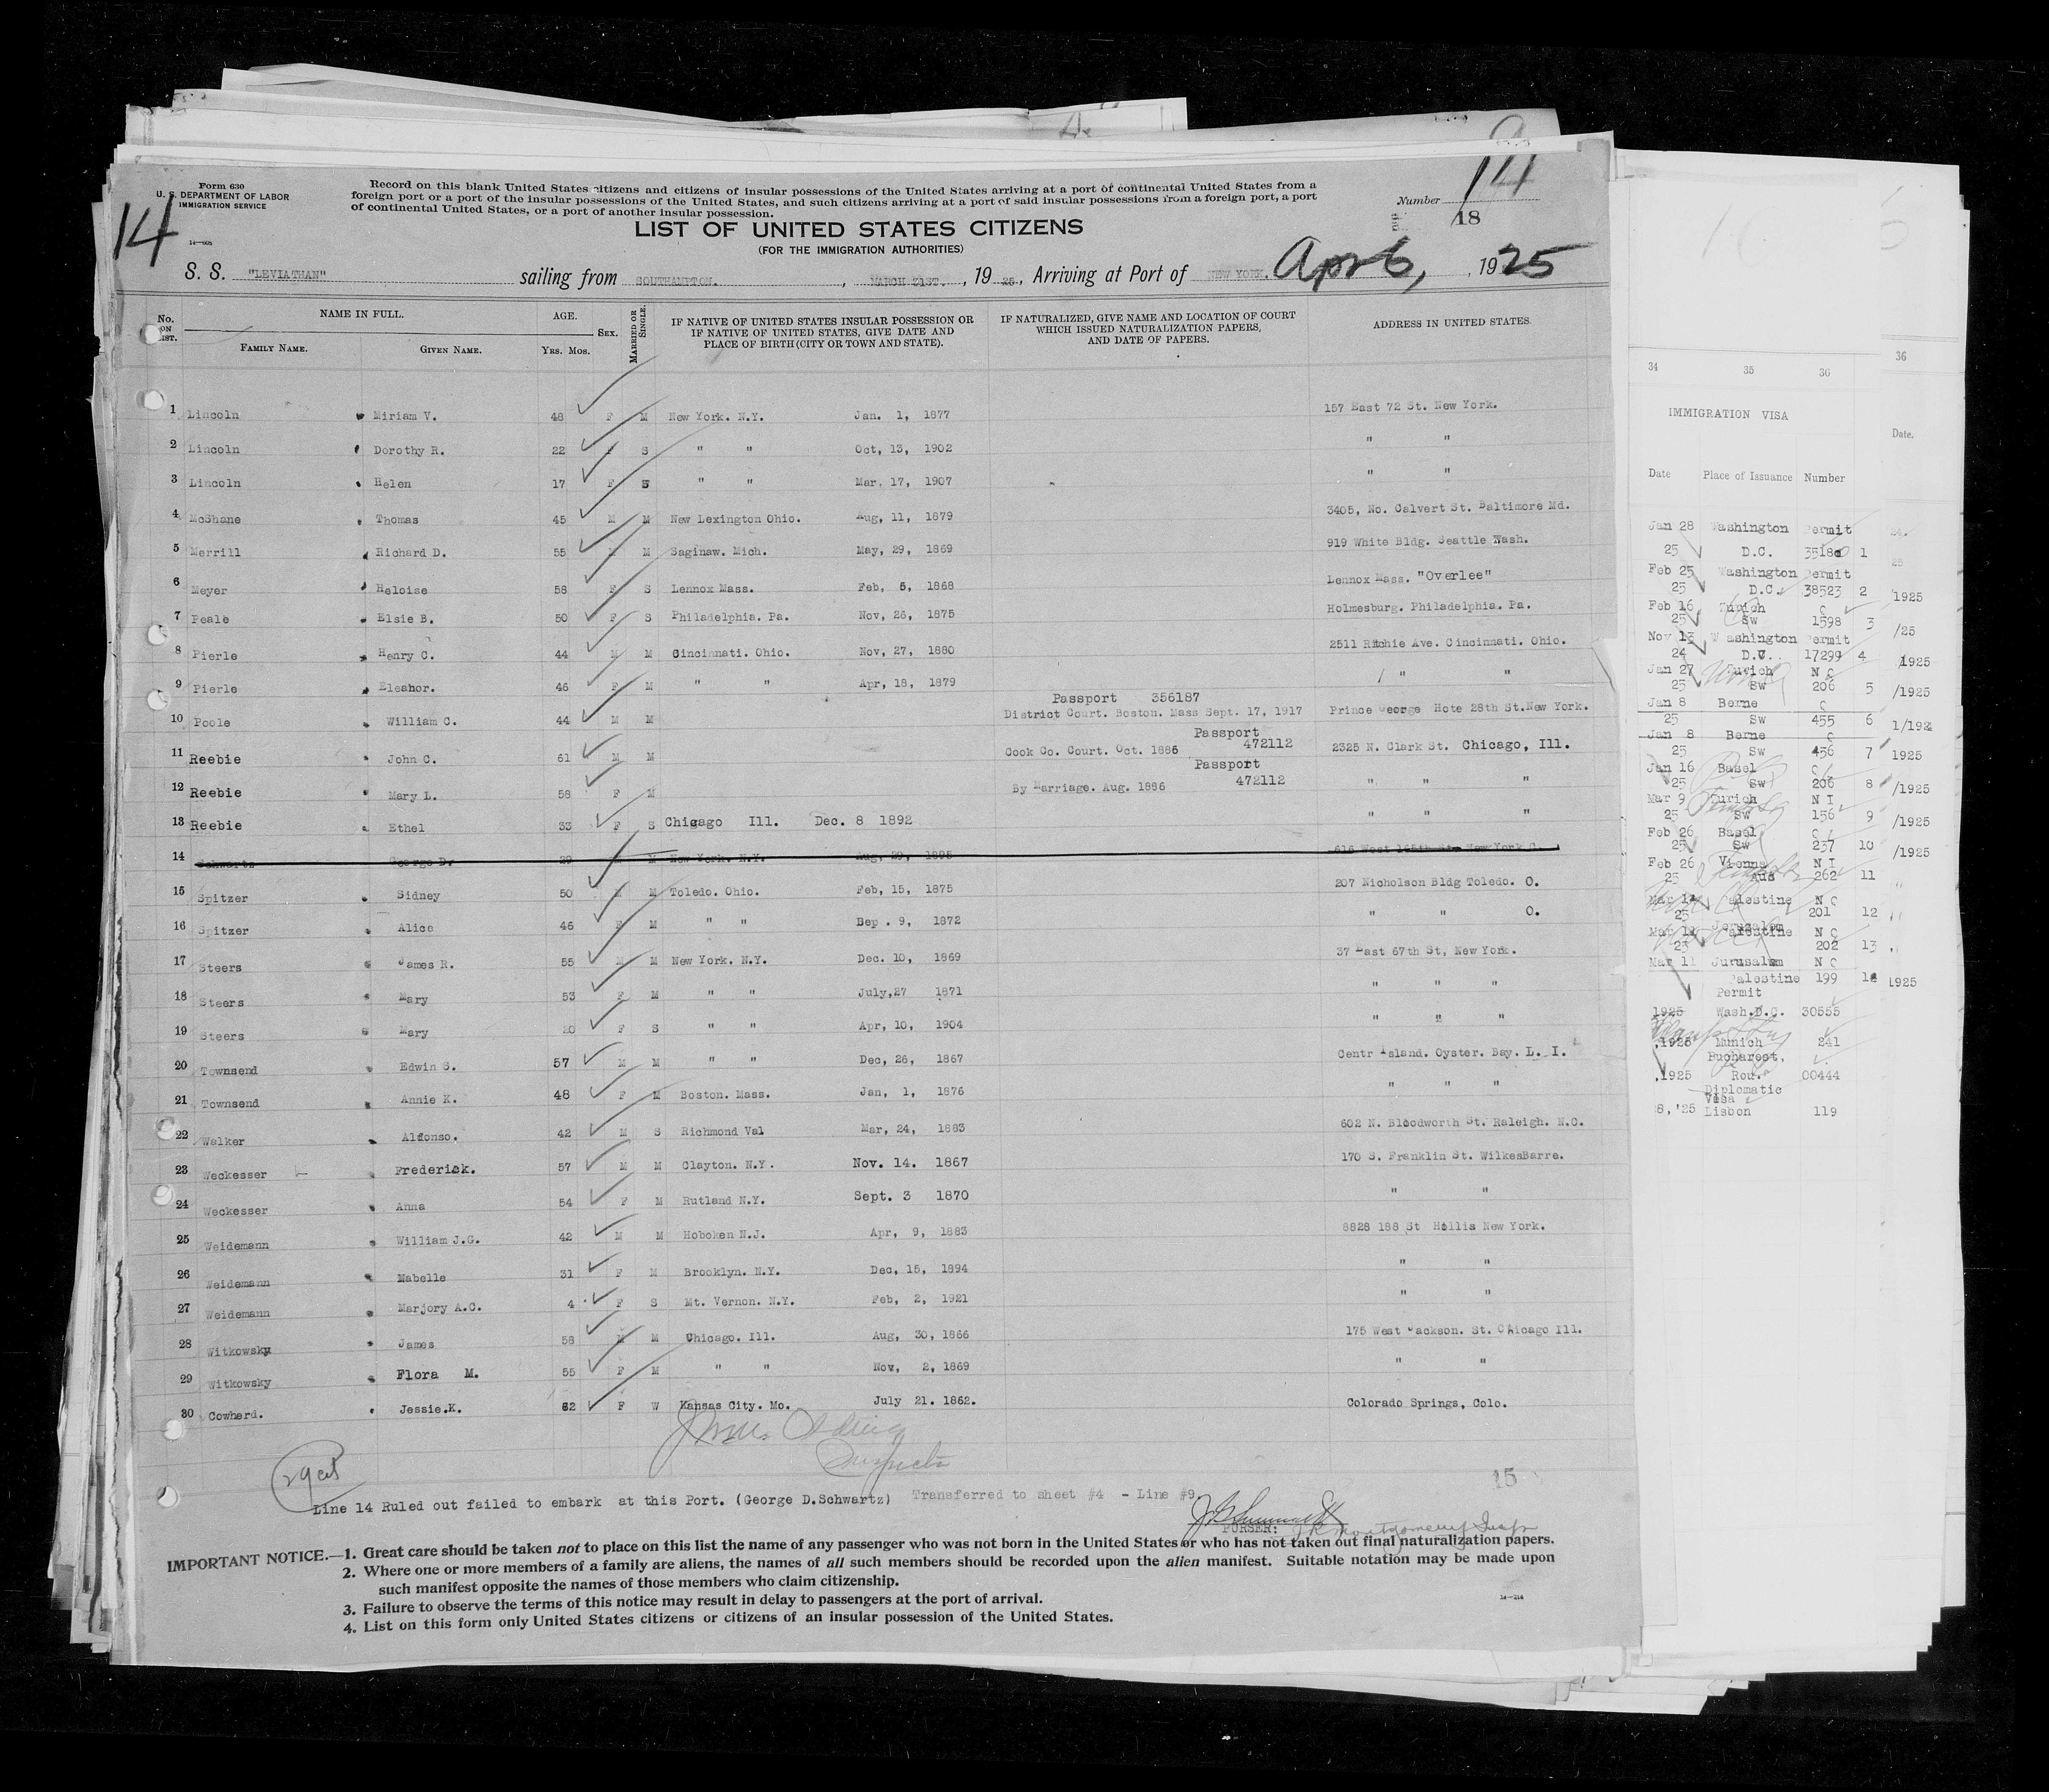 Form 630
U. S. DEPARTMENT OF LABOR
IMMIGRATION SERVICE
14
14—608
Record on this blank United States citizens and citizens of insular possessions of the United States arriving at a port of continental United States from a
foreign port or a port of the insular possessions of the United States, and such citizens arriving at a port of said insular possessions from a foreign port, a port
of continental United States, or a port of another insular possession.
Number 14
18
LIST OF UNITED STATES CITIZENS
(FOR THE IMMIGRATION AUTHORITIES)
S. S. "LEVIATHAN" sailing from SOUTHAMPTON. , MARCH 31ST. , 19 25 , Arriving at Port of NEW YORK. Apr 6, , 1925
No. ON LIST. NAME IN FULL. AGE. SEX. MARRIED OR SINGLE. IF NATIVE OF UNITED STATES INSULAR POSSESSION OR IF NATIVE OF UNITED STATES, GIVE DATE AND PLACE OF BIRTH (CITY OR TOWN AND STATE). IF NATURALIZED, GIVE NAME AND LOCATION OF COURT WHICH ISSUED NATURALIZATION PAPERS, AND DATE OF PAPERS. ADDRESS IN UNITED STATES.
FAMILY NAME. GIVEN NAME. YRS. MOS.
1 Lincoln Miriam V. 48 F M New York. N.Y. Jan. 1, 1877 157 East 72 St. New York.
2 Lincoln Dorothy R. 22 F S " " Oct, 13, 1902 " "
3 Lincoln Helen 17 F S " " Mar. 17, 1907 " "
4 McShane Thomas 45 M M New Lexington Ohio. Aug, 11, 1879 3405, No. Calvert St. Baltimore Md.
5 Merrill Richard D. 55 M M Saginaw. Mich. May, 29, 1869 919 White Bldg. Seattle Wash.
6 Meyer Heloise 58 F S Lennox Mass. Feb, 5, 1868 Lennox Mass. "Overlee"
7 Peale Elsie B. 50 F S Philadelphia. Pa. Nov, 26, 1875 Holmesburg. Philadelphia. Pa.
8 Pierle Henry C. 44 M M Cincinnati. Ohio. Nov, 27, 1880 2511 Ritchie Ave. Cincinnati. Ohio.
9 Pierle Eleanor. 46 F M " " Apr, 18, 1879 " "
Passport 356187
10 Poole William C. 44 M M District Court. Boston. Mass Sept. 17, 1917 Prince George Hote 28th St.New York.
Passport
11 Reebie John C. 61 M M Cook Co. Court. Oct. 1886 472112 2325 N. Clark St. Chicago, Ill.
Passport
12 Reebie Mary L. 58 F M By Marriage. Aug. 1886 472112 " " "
13 Reebie Ethel 33 F S Chigago Ill. Dec. 8 1892 " " "
14 Schwartz George D. 29 M M New York. N.Y. Aug, 29, 1895 616 West 165th New York C.
15 Spitzer Sidney 50 M M Toledo. Ohio. Feb, 15, 1875 207 Nicholson Bldg Toledo. O.
16 Spitzer Alice 46 F M " " Sep . 9, 1872 " " O.
17 Steers James R. 55 M M New York. N.Y. Dec. 10, 1869 37 East 67th St, New York.
18 Steers Mary 53 F M " " July,27 1871 " " "
19 Steers Mary 20 F S " " Apr, 10, 1904 " " "
20 Townsend Edwin S. 57 M M " " Dec, 26, 1867 Centr Island. Oyster. Bay. L. I.
21 Townsend Annie K. 48 F M Boston. Mass. Jan, 1, 1876 " " "
22 Walker Alfonso. 42 M S Richmond Val Mar, 24, 1883 602 N. Bloodworth St. Raleigh. N.C.
23 Weckesser Frederick. 57 M M Clayton. N.Y. Nov. 14. 1867 170 S. Franklin St. WilkesBarre.
24 Weckesser Anna 54 F M Rutland N.Y. Sept. 3 1870 " "
25 Weidemann William J.G. 42 M M Hoboken N.J. Apr, 9, 1883 8828 188 St Hollis New York.
26 Weidemann Mabelle 31 F M Brooklyn. N.Y. Dec, 15, 1894 " "
27 Weidemann Marjory A.C. 4 F S Mt. Vernon. N.Y. Feb, 2, 1921 " "
28 Witkowsky James 58 M M Chicago. Ill. Aug, 30, 1866 175 West Jackson. St. Chicago Ill.
29 Witkowsky Flora M. 55 F M " " Nov, 2, 1869 " "
30 Cowherd. Jessie.K. 62 F W Kansas City. Mo. July 21. 1862. Colorado Springs, Colo.
Inspector
29 cit
15
Line 14 Ruled out failed to embark at this Port. (George D.Schwartz) Transferred to sheet #4 - Line #9.
PURSER: Montgomery Insp
IMPORTANT NOTICE.—1. Great care should be taken not to place on this list the name of any passenger who was not born in the United States or who has not taken out final naturalization papers.
2. Where one or more members of a family are aliens, the names of all such members should be recorded upon the alien manifest. Suitable notation may be made upon
such manifest opposite the names of those members who claim citizenship.
3. Failure to observe the terms of this notice may result in delay to passengers at the port of arrival.
4. List on this form only United States citizens or citizens of an insular possession of the United States.
14—214
34 35 36
36
IMMIGRATION VISA
Date.
Date Place of Issuance Number
Jan 28 Washington Permit
25 D.C. 1
Feb 25 Washington Permit
25 D.C. 38523 2 1925
Feb 16 Zurich Q
25 Sw 1598 3 /25
Nov 13 Washington Permit
24 D.C. 17299 4 1925
Jan 27 Zurich N Q
25 Sw 206 5 /1925
Jan 8 Berne Q
25 Sw 455 6 1/192
Jan 8 Berne Q
25 Sw 456 7 1925
Jan 16 Basel Q
25 Sw 206 8 /1925
Mar 9 Zurich N I
25 Sw 156 9 /1925
Feb 26 Basel Q
25 Sw 237 10 /1925
Feb 26 Vienna N I
25 Aus 262 11
Mar 11 Palestine N Q
25 201 12
Jerusalem
Mar 11 Palestine N Q
25 202 13
Mar 11 Jurusalem N Q
Palestine 199 14 1925
Permit
1925 Wash.D.C. 30555
,1925 Munich 241
Bucharest,
,1925 Rou. 00444
Diplomatic
Visa
8,'25 Lisbon 119